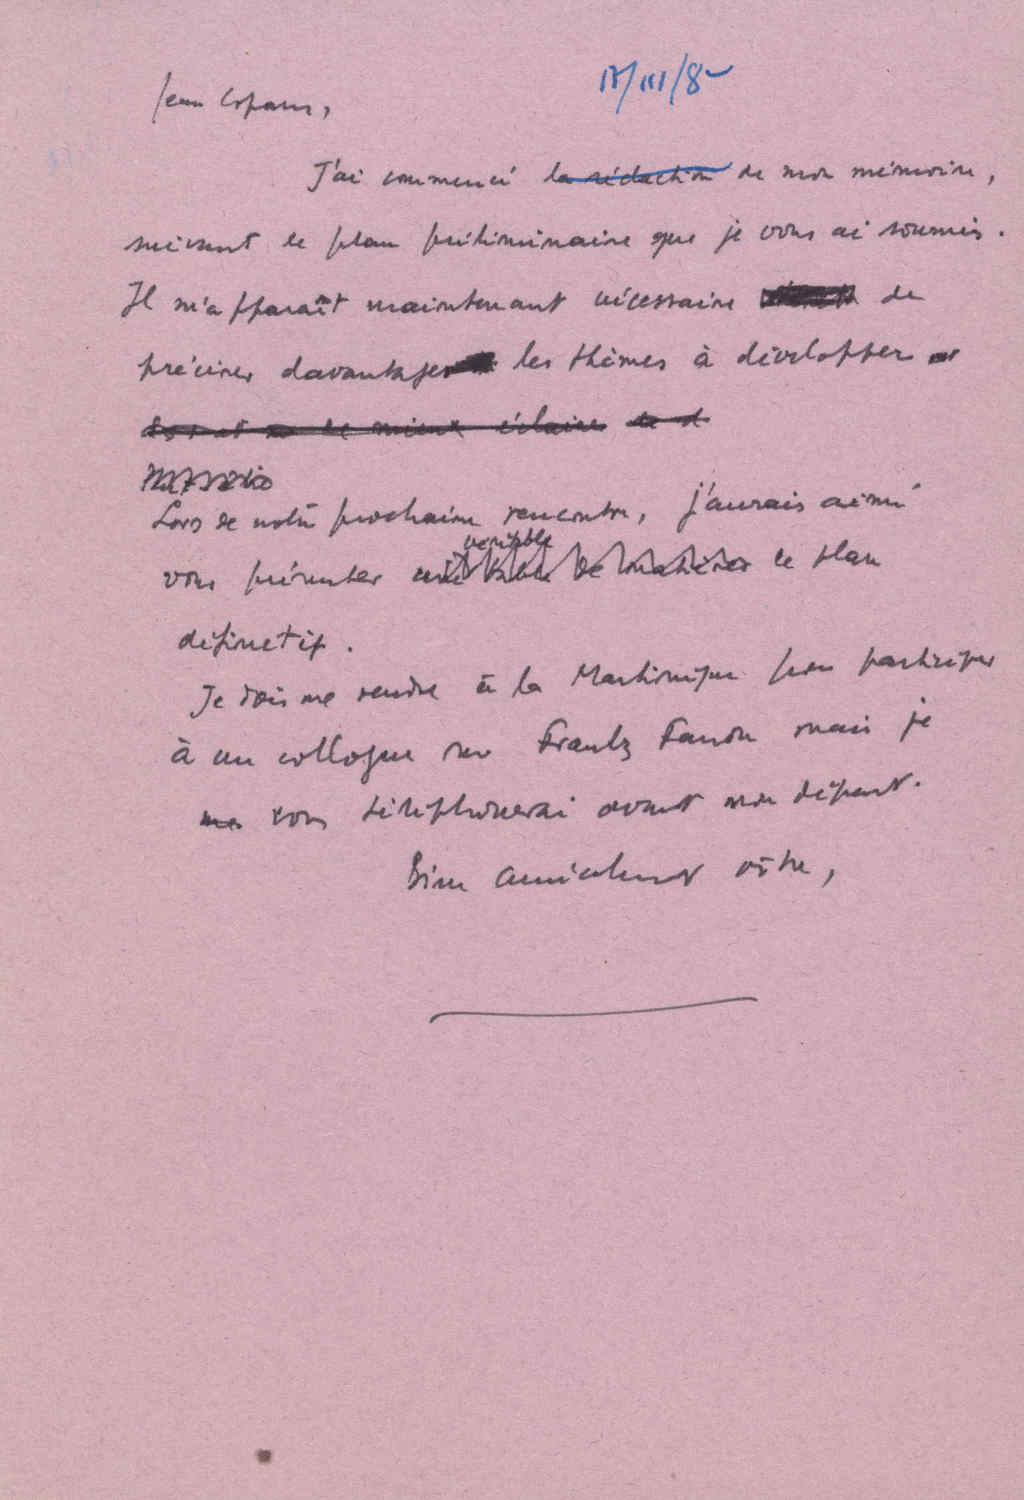 17/III/82
Jean Copans,
J'ai commencé la rédaction de mon mémoire,
suivant le plan préliminaire que je vous ai soumis.
Il m'apparaît maintenant nécessaire de
préciser davantage les thèmes à développer
et de mieux éclairer
Lors de notre prochaine rencontre, j'aurais aimé
véritable
vous présenter une table de matières le plan
définitif.
Je dois me rendre à la Martinique pour participer
à un colloque sur Frantz Fanon mais je
vous téléphonerai avant mon départ.
Bien amicalement vôtre,